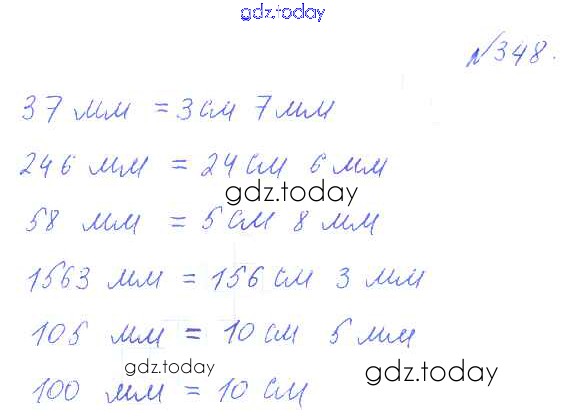 gdz.today
№348.
37 мм = 3 см 7 мм
246 мм = 24 см 6 мм
gdz.today
58 мм = 5 см 8 мм
1563 мм = 156 см 3 мм
105 мм = 10 см 5 мм
gdz.today gdz.today
100 мм = 10 см